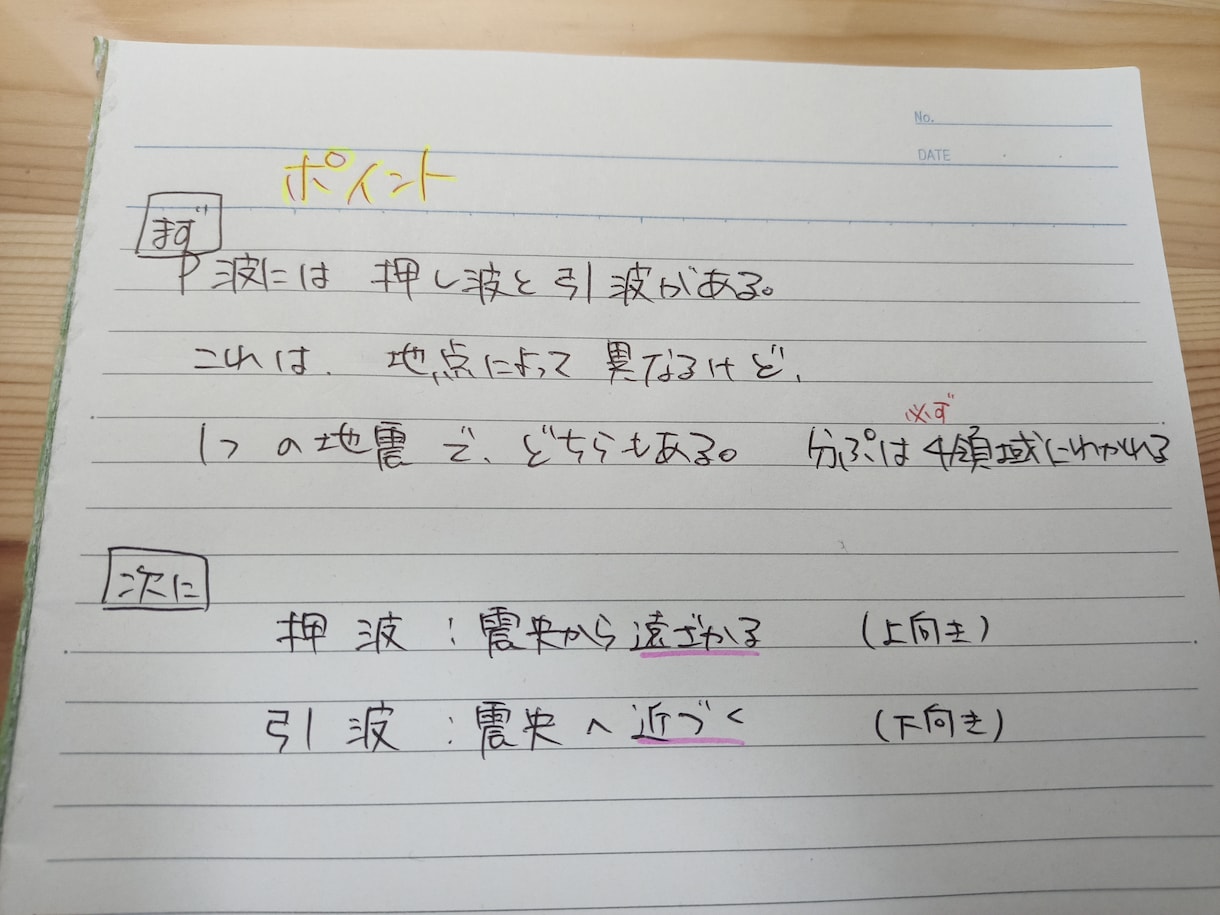 No.
DATE
ポイント
まず
P波には 押し波と引波がある。
これは、地点によって異なるけど、
1つの地震で、どちらもある。 分ぷは必ず4領域にわかれる
次に
押波：震央から遠ざかる （上向き）
引波：震央へ近づく （下向き）